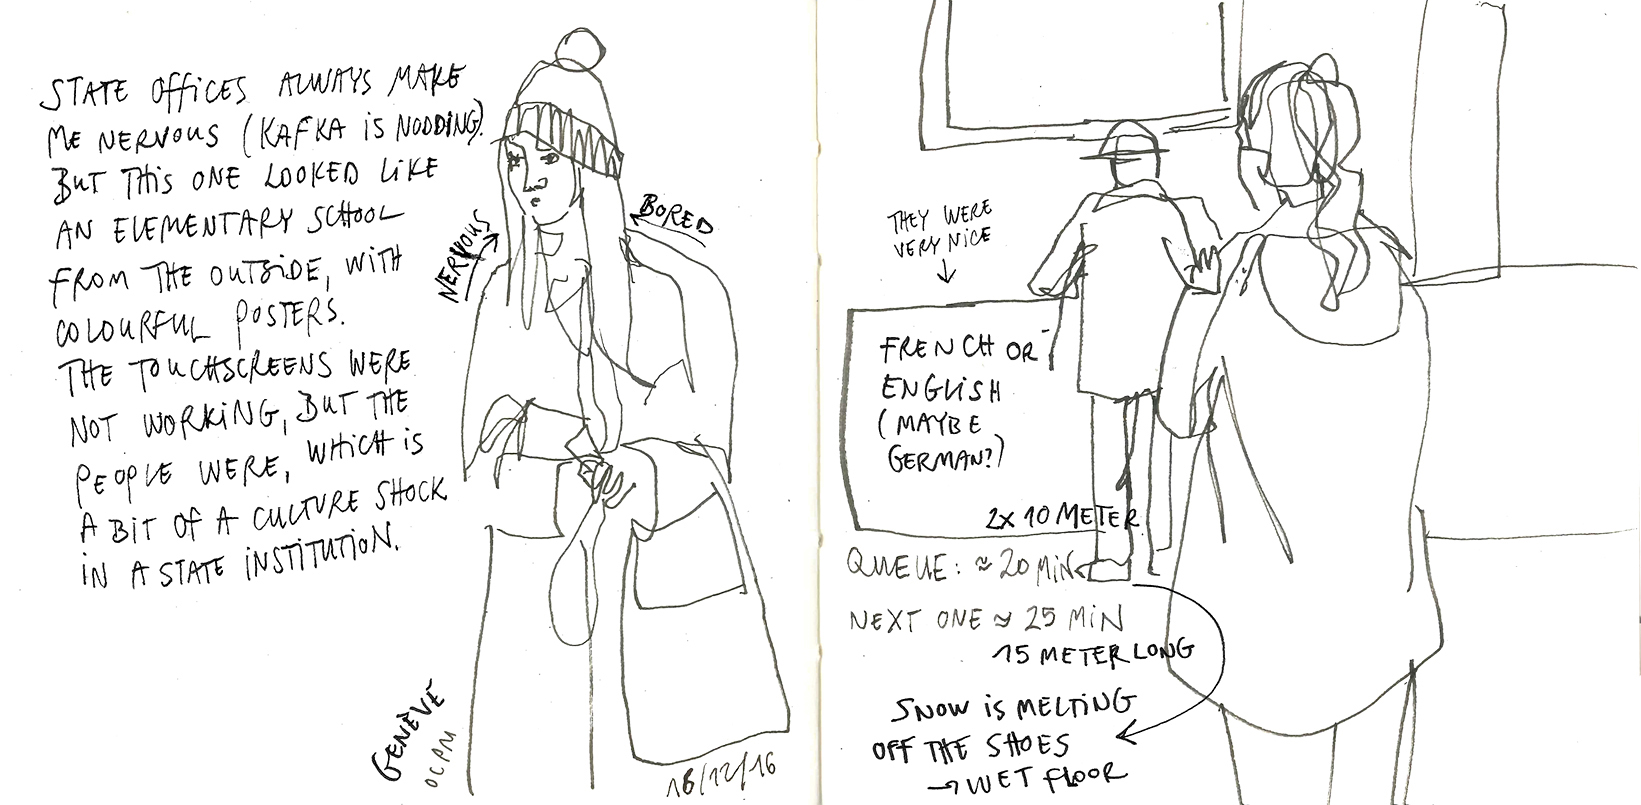 STATE OFFICES ALWAYS MAKE
ME NERVOUS (KAFKA IS NODDING).
BUT THIS ONE LOOKED LIKE
AN ELEMENTARY SCHOOL
FROM THE OUTSIDE, WITH
COLOURFUL POSTERS.
THE TOUCHSCREENS WERE
NOT WORKING, BUT THE
PEOPLE WERE, WHICH IS
A BIT OF A CULTURE SHOCK
IN A STATE INSTITUTION.
NERVOUS
BORED
GENÈVE
OCPM
16/12/16
THEY WERE
VERY NICE
FRENCH OR
ENGLISH
(MAYBE
GERMAN?)
2X 10 METER
QUEUE: ≈ 20 MIN
NEXT ONE ≈ 25 MIN
15 METER LONG
SNOW IS MELTING
OFF THE SHOES
→ WET FLOOR